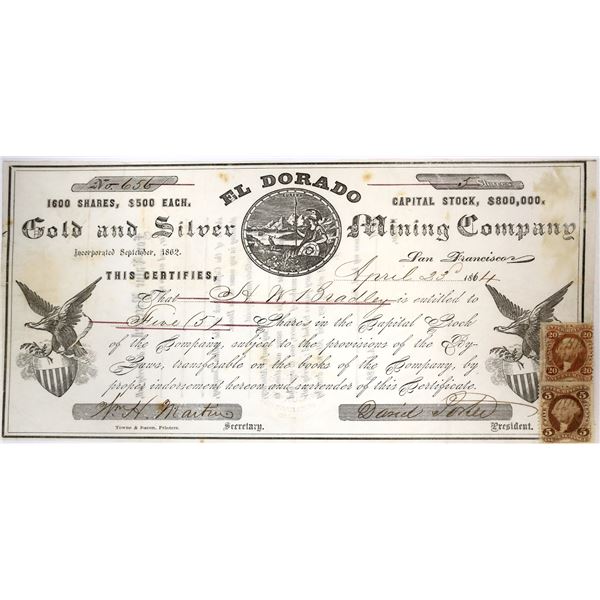 No. 656
5 Shares
EL DORADO
1600 SHARES, $500 EACH.
CAPITAL STOCK, $800,000.
Gold and Silver Mining Company
Incorporated September, 1862.
San Francisco
April 23d 1864
THIS CERTIFIES,
That H W Bradley is entitled to
Five (5) Shares in the Capital Stock
of the Company, subject to the provisions of the By-
Laws, transferable on the books of the Company, by
proper indorsement hereon and surrender of this Certificate.
Wm H. Martin
David
Towne & Bacon, Printers.
Secretary.
President.
20 20
20 20
5 5
5 5